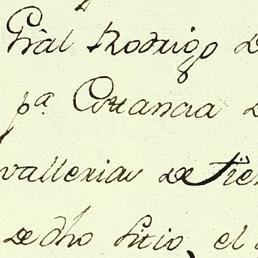 Gral Rodrigo D
pa Estancia d
vallerias de tier
de dho sitio, el